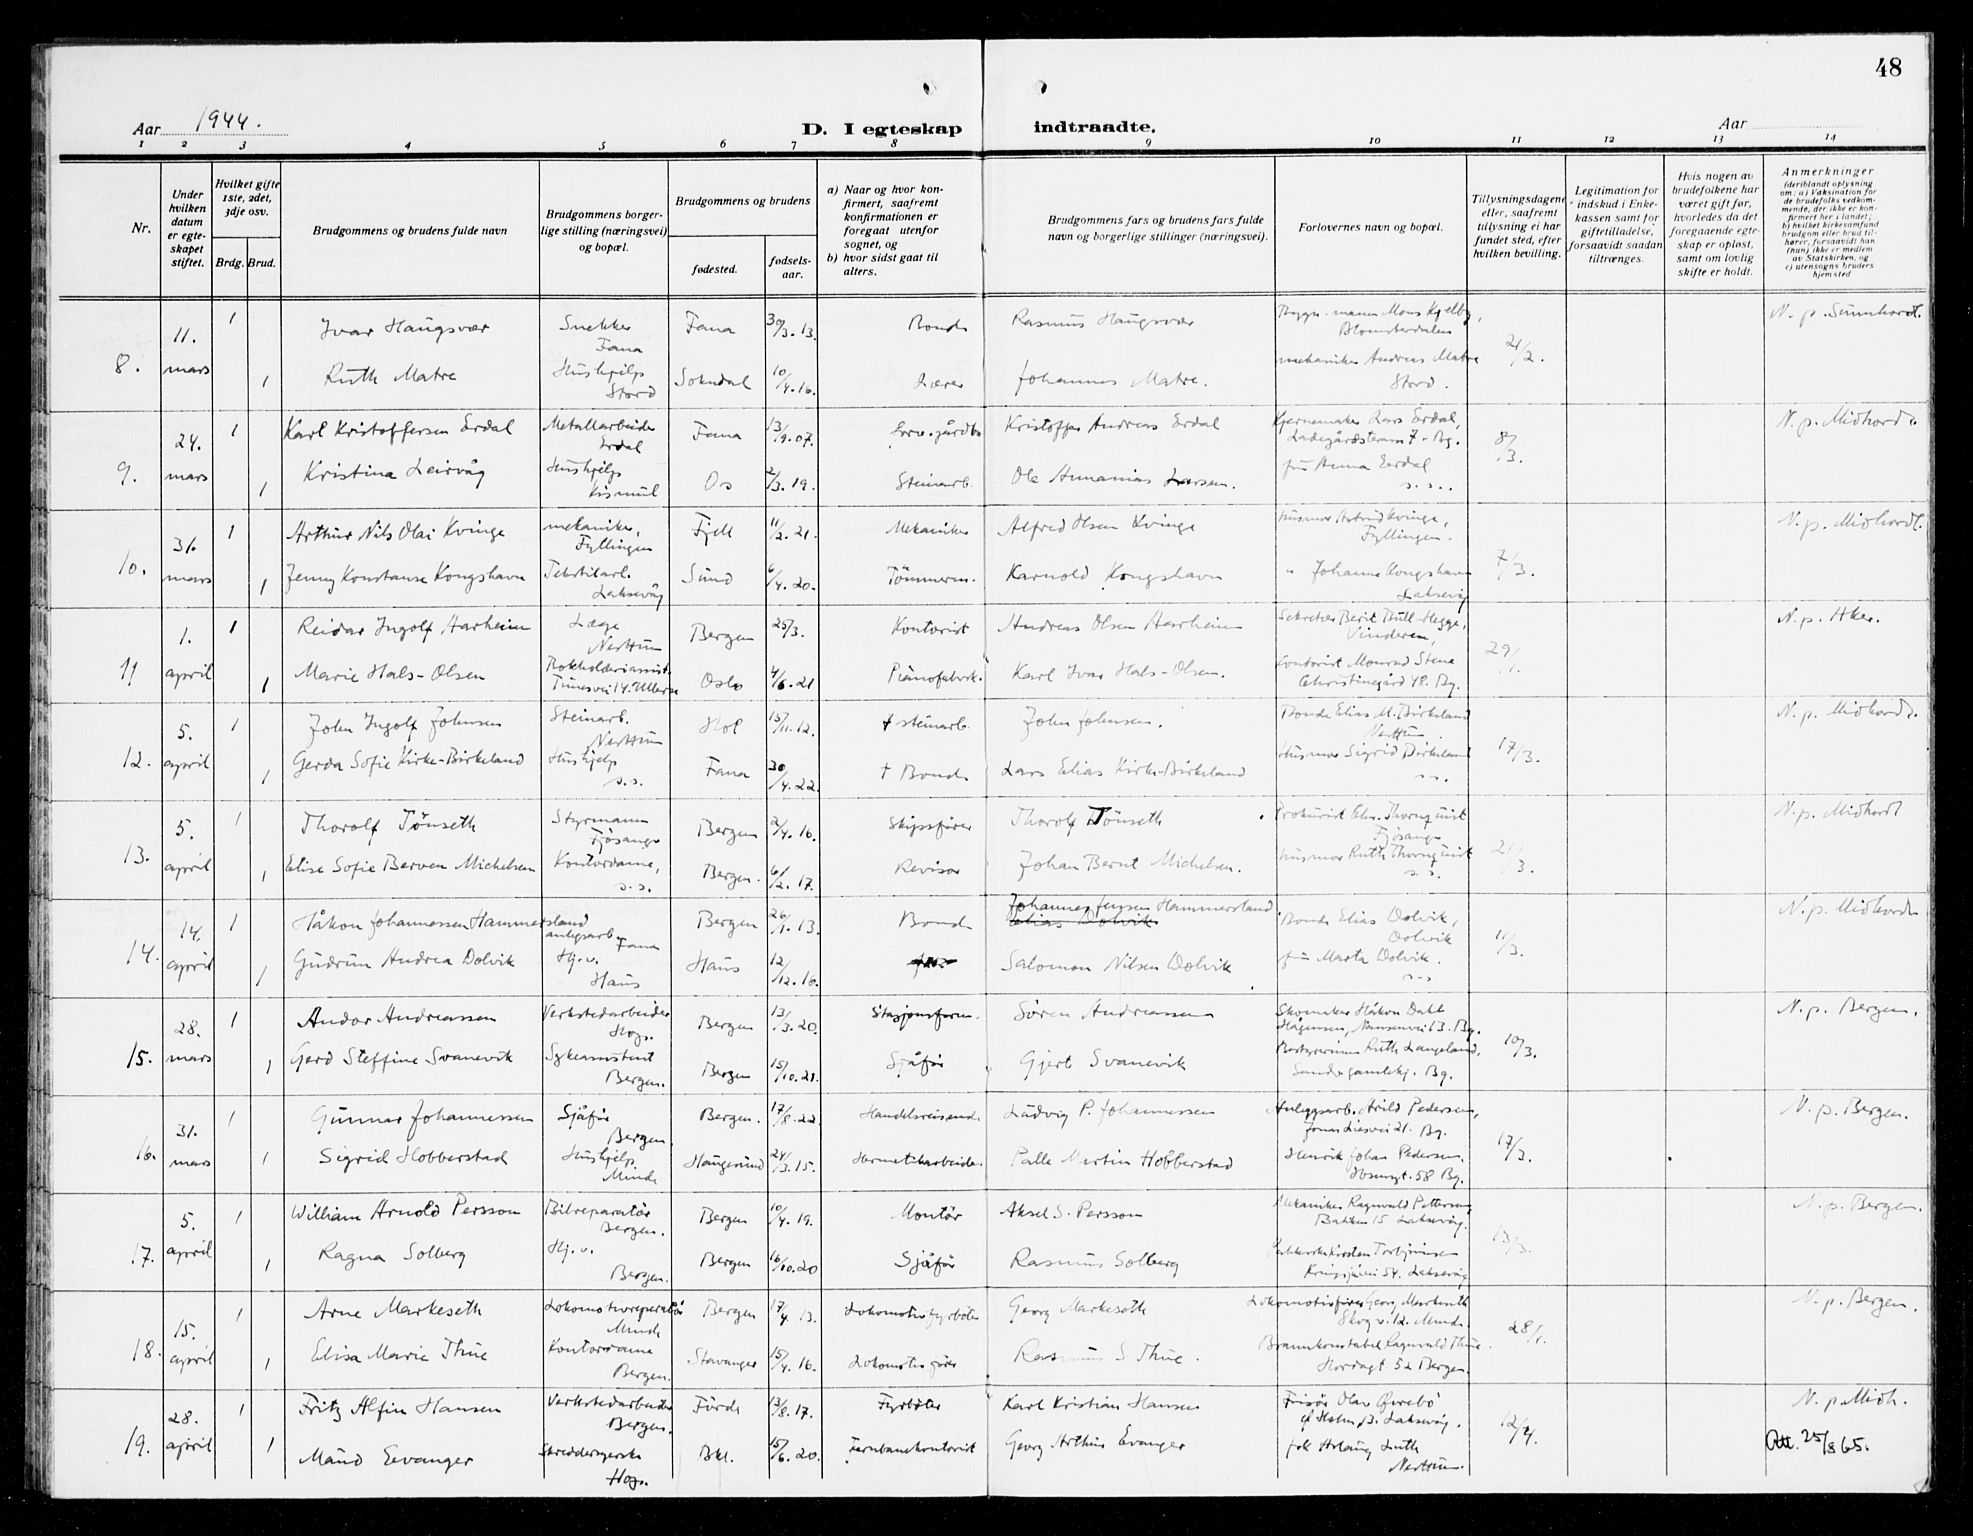 48
Aar 1944.
D. I egteskap indtraadte.
Aar
1 2 3 4 5 6 7 8 9 10 11 12 13 14
Nr.
Under hvilken datum er egteskapet stiftet.
Hvilket gifte 1ste, 2det, 3dje osv.
Brdg. Brud.
Brudgommens og brudens fulde navn
Brudgommens borgerlige stilling (næringsvei) og bopæl.
Brudgommens og brudens
fødested.
fødselsaar.
a) Naar og hvor konfirmert, saafremt konfirmationen er foregaat utenfor sognet, og
b) hvor sidst gaat til alters.
Brudgommens fars og brudens fars fulde navn og borgerlige stillinger (næringsvei).
Forlovernes navn og bopæl.
Tillysningsdagene eller, saafremt tillysning ei har fundet sted, efter hvilken bevilling.
Legitimation for indskud i Enkekassen samt for giftetilladelse, forsaavidt saadan tiltrænges.
Hvis nogen av brudefolkene har været gift før, hvorledes da det foregaaende egteskap er opløst, samt om lovlig skifte er holdt.
Anmerkninger (deriblandt oplysning om: a) Vaksination for de brudefolks vedkommende, der ikke er konfirmert her i landet; b) hvilket kirkesamfund brudgom eller brud tilhører, forsaavidt han (hun) ikke er medlem av Statskirken, og c) utensogns bruders hjemsted
8. 11. mars 1 Ivar Haugsvær Snekker Fana Fana 30/3.13. Bonde Rasmus Haugsvær Mons Kjelby, Blomsterdalen 21/2. N. p. Sunnhordl.
1 Ruth Matre Hushjelp Stord Sokndal 10/4.16. Lærer Johannes Matre. mekaniker Andreas Matre Stord.
9. 24. mars 1 Karl Kristoffersen Erdal Metallarbeider Erdal Fana 13/9.07. Kristoffer Andreas Erdal Kjernemaker Lars Erdal, Ladegårdsterrasse 7 - Bg. 8/3. N. p. Midhordl.
1 Kristina Leirvåg Hushjelp Kismul Os 2/3.19. Steinarb. Ole Annanias Larsen. fru Anna Erdal s. s.
10. 31. mars 1 Arthur Nils Olai Kvinge mekaniker, Fyllingen Fjell 11/2.21. Mekaniker Alfred Olsen Kvinge Husmor Astrid Kvinge, Fyllingen. 7/3. N. p. Midhordl.
1 Jenny Konstanse Kongshavn Tekstilarb. Laksevåg Sund 6/4.20. Tömmerm. Karnold Kongshavn " Johanne Kongshavn Laksevåg
11 1. april 1 Reidar Ingolf Aarheim Læge Nesttun Bergen 25/3. Kontorist Andreas Olsen Aarheim Sekretær Berit Thill-Hegge, Vinderen, 29/1. N. p. Aker.
1 Marie Hals-Olsen Bokholderiassist. Tunesvei 14. Ullern Oslo 4/6.21 Pianofabrik. Karl Ivar Hals-Olsen. Kontorist Monrad Stene Christinegård 48. Bg.
12. 5. april 1 John Ingolf Johnsen Steinarb. Nesttun Hol 15/11.12. † steinarb. John Johnsen. Bonde Elias M. Birkeland Nesttun 17/3. N. p. Midhordl.
1 Gerda Sofie Kirke-Birkeland Hushjelp s.s. Fana 30/4.22. † Bonde Lars Elias Kirke-Birkeland Husmor Sigrid Birkeland s.s.
13. 5. april 1 Thorolf Tönseth Styrmann Fjösanger Bergen 2/4.16. Skipsförer Thorolf Tönseth Prokurist Chr. Thornquist Fjösanger 21/3. N. p. Midhordl
1 Elise Sofie Berven Michelsen Kontordame, s.s. Bergen. 6/2.17. Revisor Johan Bernt Michelsen. husmor Ruth Thornquist s.s.
14. 14. april 1 Håkon Johannessen Hammersland anlegsarb. Fana Bergen 26/1.13. Bonde Johannes Jensen Hammersland Elias Dolvik Bonde Elias Dolvik, Dolvik 11/3. N. p. Midhordl.
1 Gudrun Andrea Dolvik Hj.v. Haus Haus 12/12.16. Salomon Nilsen Dolvik fru Marta Dolvik. s-s
15. 28. mars 1 Andor Andreassen Verkstedarbeider Hop. Bergen 13/3.20. Stasjonsform. Sören Andreassen Skomaker Håkon Dahl Hågensen, Nansenvei 13. Bg. 10/3. N. p. Bergen.
1 Gerd Steffine Svanevik Sykeassistent Bergen. Bergen 15/10.21. Sjåfør Gjert Svanevik Bestyrerinne Ruth Langeland, Sandv. gamlehj. Bg.
16. 31. mars 1 Gunnar Johannessen Sjåfør Bergen. Bergen. 17/8.22. Handelsreisende Ludvig P. Johannessen Anleggsarb. Arild Pedersen, Jonas Liesvei 21. Bg. 17/3. N. p. Bergen.
1 Sigrid Hobberstad Hushjelp. Minde Haugesund 24/3.15. Hermetikarbeider Palle Martin Hobberstad Henrik Johan Pedersen. Ibsensgt. 58 Bg.
17. 5. april 1 William Arnold Persson Bilreparatör Bergen. Bergen 10/4.19. Montör Aksel S. Persson Mekaniker Ragnvald Pettersen Bakken 15 Laksevåg. 13/3. N. p. Bergen.
1 Ragna Solberg Hj.v. Bergen. Bergen 16/10.20 Sjåför Rasmus Solberg Kirsten Torbjörnsen Kringsjåvei 54. Laksevåg
18. 15. april 1 Arne Markeseth Lokomotivreparatör Minde Bergen 17/4.13. Lokomotivfyrböter Georg Markeseth Lokomotivförer Georg Markeseth Skogv. 12. Minde. 28/1. N. p. Bergen.
1 Elisa Marie Thue Kontordame Bergen. Stavanger 15/4.16. Lokomotivförer Rasmus S Thue. Brannkonstabel Ragnvald Thue. Hordagt. 52 Bergen.
19. 28. april 1 Fritz Alfin Hansen Verkstedarbeider Bergen. Förde 13/8.17. Fyrböter Karl Kristian Hansen Frisör Olav Övrebö Laksevåg. 12/4. N. p. Midh.
1 Maud Evanger Skreddersyerske Hop. Bkl. 15/6.20. Jernbanekontorist Georg Arthur Evanger frk Aslaug Luth Nesttun. Att. 25/8 65.